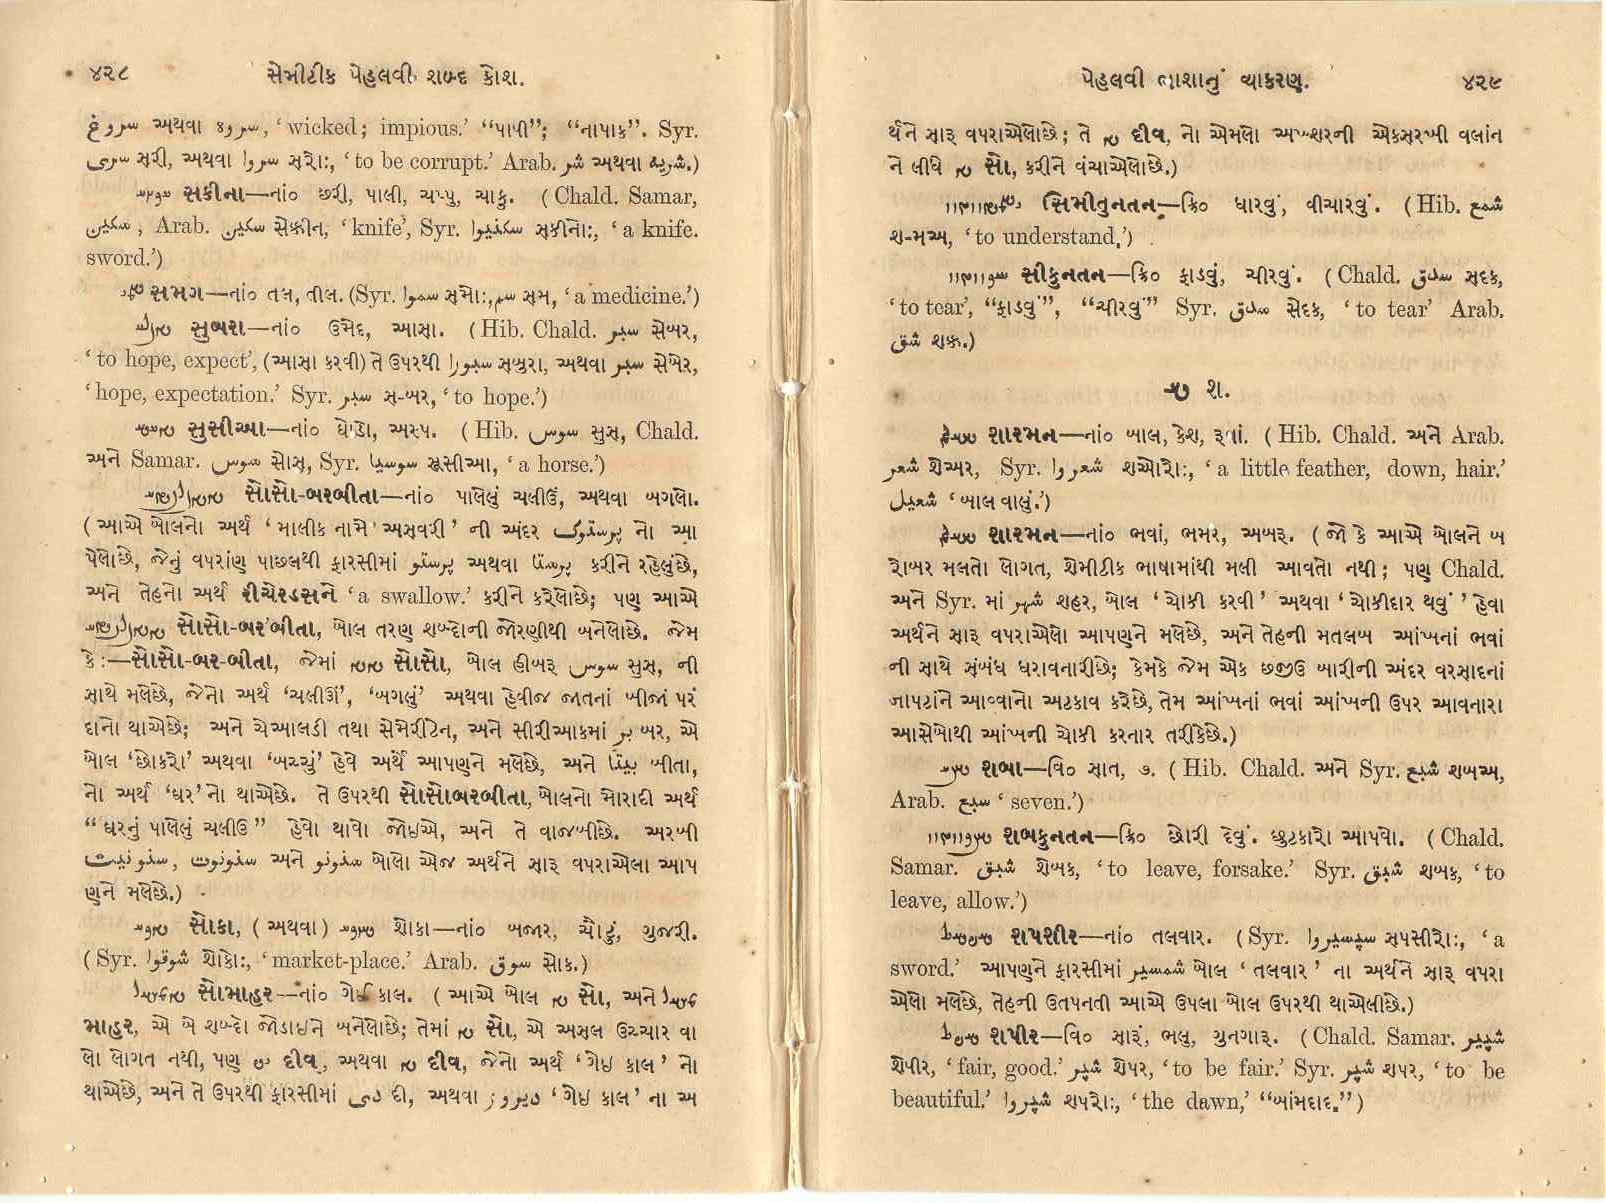 ૪૨૮ સેમીટીક પેહલવી શબ્દ કોશ.
سروغ અથવા سروع, ‘wicked; impious.’ “પાપી”; “નાપાક”. Syr.
سری સરી, અથવા سروا સરોા:, ‘to be corrupt.’ Arab. شر અથવા شریة.)
સકીના—નાં૦ છરી, પાલી, ચપ્પુ, ચાકુ. (Chald. Samar,
سکین, Arab. سکین સેક્કીન, ‘knife’, Syr. سکنیوا સકીનોા:, ‘a knife.
sword.’)
સમગ—નાં૦ તલ, તીલ. (Syr. سموا સમોા:, سم સમ, ‘a medicine.’)
સુબરા—નાં૦ ઉમેદ, આસા. (Hib. Chald. سبر સેબર,
‘to hope, expect’, (આસા કરવી) તે ઉપરથી سبورا સબુરા, અથવા سبر સેબેર,
‘hope, expectation.’ Syr. سبر સ-બર, ‘to hope.’)
સુસીઆ—નાં૦ ઘોડો, અસ્પ. (Hib. سوس સુસ, Chald.
અને Samar. سوس સોસ, Syr. سوسیا સૂસીઆ, ‘a horse.’)
સોસો-બરબીતા—નાં૦ પાલેલું ચલીઉં, અથવા બગલો.
(આએ બોલનો અર્થ ‘માલીક નામે અસવરી’ ની અંદર پرستوک નો આ
પેલોછે, જેનું વપરાંણ પાછલથી ફારસીમાં پرستو અથવા پرستا કરીને રહેલુંછે,
અને તેહનો અર્થ રીચેરડસને ‘a swallow.’ કરીને કરેલોછે; પણ આએ
સોસો-બર-બીતા, બોલ તરણ શબ્દોની જોરણીથી બનેલોછે. જેમ
કે:—સોસો-બર-બીતા, જેમાં સોસો, બોલ હીબરૂ سوس સુસ, ની
સાથે મલેછે, જેનો અર્થ ‘ચલીઊં’, ‘બગલું’ અથવા હેવીજ જાતનાં બીજાં પરં
દાંનો થાએછે; અને ચેઆલડી તથા સેમેરીટેન, અને સીરીઆકમાં بر બર, એ
બોલ ‘છોકરો’ અથવા ‘બચ્ચું’ હેવે અર્થે આપણને મલેછે, અને بیتا બીતા,
નો અર્થ ‘ઘર’ નો થાએછે. તે ઉપરથી સોસોબરબીતા, બોલનો મોરાદી અર્થ
“ઘરનું પાલેલું ચલીઉં” હેવો થાવો જોઈએ, અને તે વાજબીછે. અરબી
سنونیت, سنونوت અને سنونو બોલો એજ અર્થને સારૂ વપરાએલા આપ
ણને મલેછે.)
સોકા, (અથવા) શોકા—નાં૦ બજાર, ચૌટું, ગુજરી.
(Syr. شوقوا શોકોા:, ‘market-place.’ Arab. سوق સોક.)
સોમાહર—નાં૦ ગેઈ કાલ. (આએ બોલ સો, અને
માહર, એ બે શબ્દો જોડાઈને બનેલોછે; તેમાં સો, એ અસલ ઉચ્ચાર વા
લો લાગત નથી, પણ દીવ, અથવા દીવ, જેનો અર્થ ‘ગેઈ કાલ’ નો
થાએછે, અને તે ઉપરથી ફારસીમાં دی દી, અથવા دیروز ‘ગેઈ કાલ’ ના અ
પેહલવી ભાશાનું વ્યાકરણ. ૪૨૯
ર્થને સારૂ વપરાએલોછે; તે દીવ, નો એમલો અખ્શરની એકસરખી વલાંન
ને લીધે સો, કરીને વંચાએલોછે.)
સિમીતુનતન—ક્રિ૦ ધારવું, વીચારવું. (Hib. شمع
શ-મઅ, ‘to understand.’)
સીકુનતન—ક્રિ૦ ફાડવું, ચીરવું. (Chald. سدق સદક,
‘to tear’, “ફાડવું”, “ચીરવું” Syr. سدق સેદક, ‘to tear’ Arab.
شق શક્ક.)
શ.
શારમન—નાં૦ બાલ, કેશ, રૂવાં. (Hib. Chald. અને Arab.
شعر શેઅર, Syr. شعروا શઓરોા:, ‘a little feather, down, hair.’
شعیل ‘બાલ વાલું.’)
શારમન—નાં૦ ભવાં, ભમર, અબરૂ. (જો કે આએ બોલને બ
રોબર મલતો લોગત, શેમીટીક ભાષામાંથી મલી આવતો નથી; પણ Chald.
અને Syr. માં شهر શહર, બોલ ‘ચોકી કરવી’ અથવા ‘ચોકીદાર થવું’ હેવા
અર્થને સારૂ વપરાએલો આપણને મલેછે, અને તેહની મતલબ આંખનાં ભવાં
ની સાથે સંબંધ ધરાવનારીછે; કેમકે જેમ એક છજીઉ બારીની અંદર વરસાદનાં
જાપટાંને આવ્વાનો અટકાવ કરેછે, તેમ આંખનાં ભવાં આંખની ઉપર આવનારા
આસેબોથી આંખની ચોકી કરનાર તરીકેછે.)
શબા—વિ૦ સાત, ૭. (Hib. Chald. અને Syr. شبع શબઅ,
Arab. سبع ‘seven.’)
શબકુનતન—ક્રિ૦ છોરી દેવું. છુટકારો આપવો. (Chald.
Samar. شبق શેબક, ‘to leave, forsake.’ Syr. شبق શબક, ‘to
leave, allow.’)
શપશીર—નાં૦ તલવાર. (Syr. سپسیروا સપસીરોા:, ‘a
sword.’ આપણને ફારસીમાં شمسیر બોલ ‘તલવાર’ ના અર્થને સારૂ વપરા
એલો મલેછે, તેહની ઉતપનતી આએ ઉપલા બોલ ઉપરથી થાએલીછે.)
શપીર—વિ૦ સારૂં, ભલુ, ગુનગારૂ. (Chald. Samar. شپیر
શેપીર, ‘fair, good.’ شپر શેપર, ‘to be fair.’ Syr. شپر શપર, ‘to be
beautiful.’ شپروا શપરોા:, ‘the dawn,’ “બાંમદાદ.”)